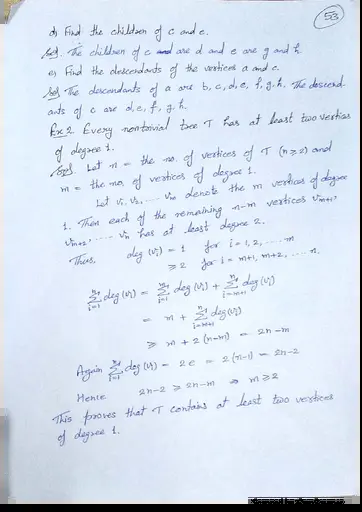 53
d) Find the children of c and e.
Sol. The children of c are d and e are g and h
e) Find the descendants of the vertices a and c.
Sol The descendants of a are b, c, d, e, f, g, h. The descend-
ants of c are d, e, f, g, h.
Ex 2. Every nontrivial tree T has at least two vertices
of degree 1.
Sol. Let n = the no. of vertices of T (n ≥ 2) and
m = the no. of vertices of degree 1.
Let v₁, v₂, ..... vₘ denote the m vertices of degree
1. Then each of the remaining n-m vertices vₘ₊₁,
vₘ₊₂, ..... vₙ has at least degree 2.
Thus, deg (vᵢ) = 1 for i = 1, 2, .... m
≥ 2 for i = m+1, m+2, .... n.
n∑i=1 deg (vᵢ) = m∑i=1 deg (vᵢ) + n∑i=m+1 deg (vᵢ)
= m + n∑i=m+1 deg (vᵢ)
≥ m + 2 (n-m) = 2n-m
Again n∑i=1 deg (vᵢ) = 2e = 2(n-1) = 2n-2
Hence 2n-2 ≥ 2n-m ⇒ m ≥ 2
This proves that T contains at least two vertices
of degree 1.